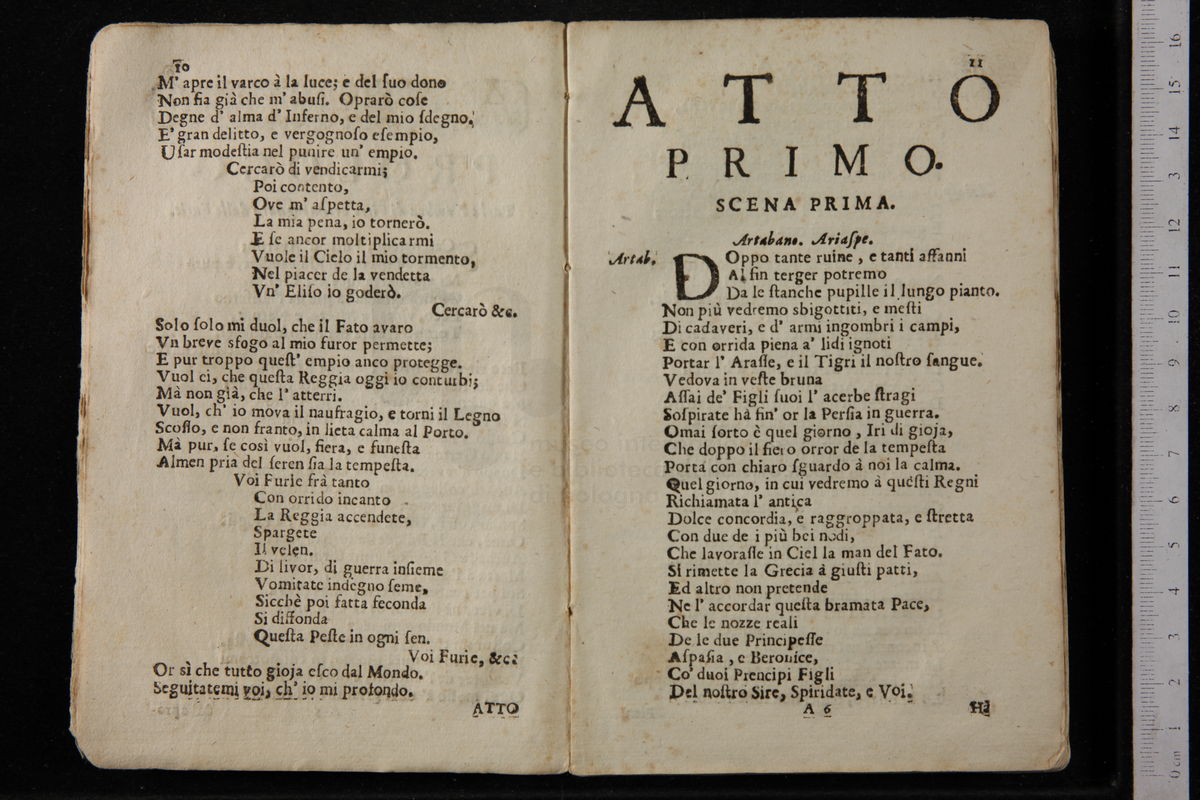 10
M' apre il varco à la luce; e del ſuo dono
Non fia già che m' abuſi. Oprarò coſe
Degne d' alma d' Inferno, e del mio ſdegno.
E' gran delitto, e vergognoſo eſempio,
Uſar modeſtia nel punire un' empio.
Cercarò di vendicarmi;
Poi contento,
Ove m' aſpetta,
La mia pena, io tornerò.
E ſe ancor moltiplicarmi
Vuole il Cielo il mio tormento,
Nel piacer de la vendetta
Vn' Eliſo io goderò.
Cercarò &c.
Solo ſolo mi duol, che il Fato avaro
Vn breve sfogo al mio furor permette;
E pur troppo queſt' empio anco protegge.
Vuol ei, che queſta Reggia oggi io conturbi;
Mà non già, che l' atterri.
Vuol, ch' io mova il naufragio, e torni il Legno
Scoſſo, e non franto, in lieta calma al Porto.
Mà pur, ſe così vuol, fiera, e funeſta
Almen pria del ſeren ſia la tempeſta.
Voi Furie frà tanto
Con orrido incanto
La Reggia accendete,
Spargete
Il velen.
Di livor, di guerra inſieme
Vomitate indegno ſeme,
Sicchè poi fatta feconda
Si diffonda
Queſta Peſte in ogni ſen.
Voi Furie, &c.
Or sì che tutto gioja eſco dal Mondo.
Seguitatemi voi, ch' io mi profondo.
ATTO
11
ATTO
PRIMO.
SCENA PRIMA.
Artabano. Ariaſpe.
Artab. DOppo tante ruine, e tanti affanni
Al fin terger potremo
Da le ſtanche pupille il lungo pianto.
Non più vedremo sbigottiti, e meſti
Di cadaveri, e d' armi ingombri i campi,
E con orrida piena a' lidi ignoti
Portar l' Araſſe, e il Tigri il noſtro ſangue.
Vedova in veſte bruna
Aſſai de' Figli ſuoi l' acerbe ſtragi
Soſpirate hà fin' or la Perſia in guerra.
Omai ſorto è quel giorno, Iri di gioja,
Che doppo il fiero orror de la tempeſta
Porta con chiaro ſguardo à noi la calma.
Quel giorno, in cui vedremo à queſti Regni
Richiamata l' antica
Dolce concordia, e raggroppata, e ſtretta
Con due de i più bei nodi,
Che lavoraſſe in Ciel la man del Fato.
Si rimette la Grecia à giuſti patti,
Ed altro non pretende
Ne l' accordar queſta bramata Pace,
Che le nozze reali
De le due Principeſſe
Aſpaſia, e Beronice,
Co' duoi Prencipi Figli
Del noſtro Sire, Spiridate, e Voi.
A 6
Hà